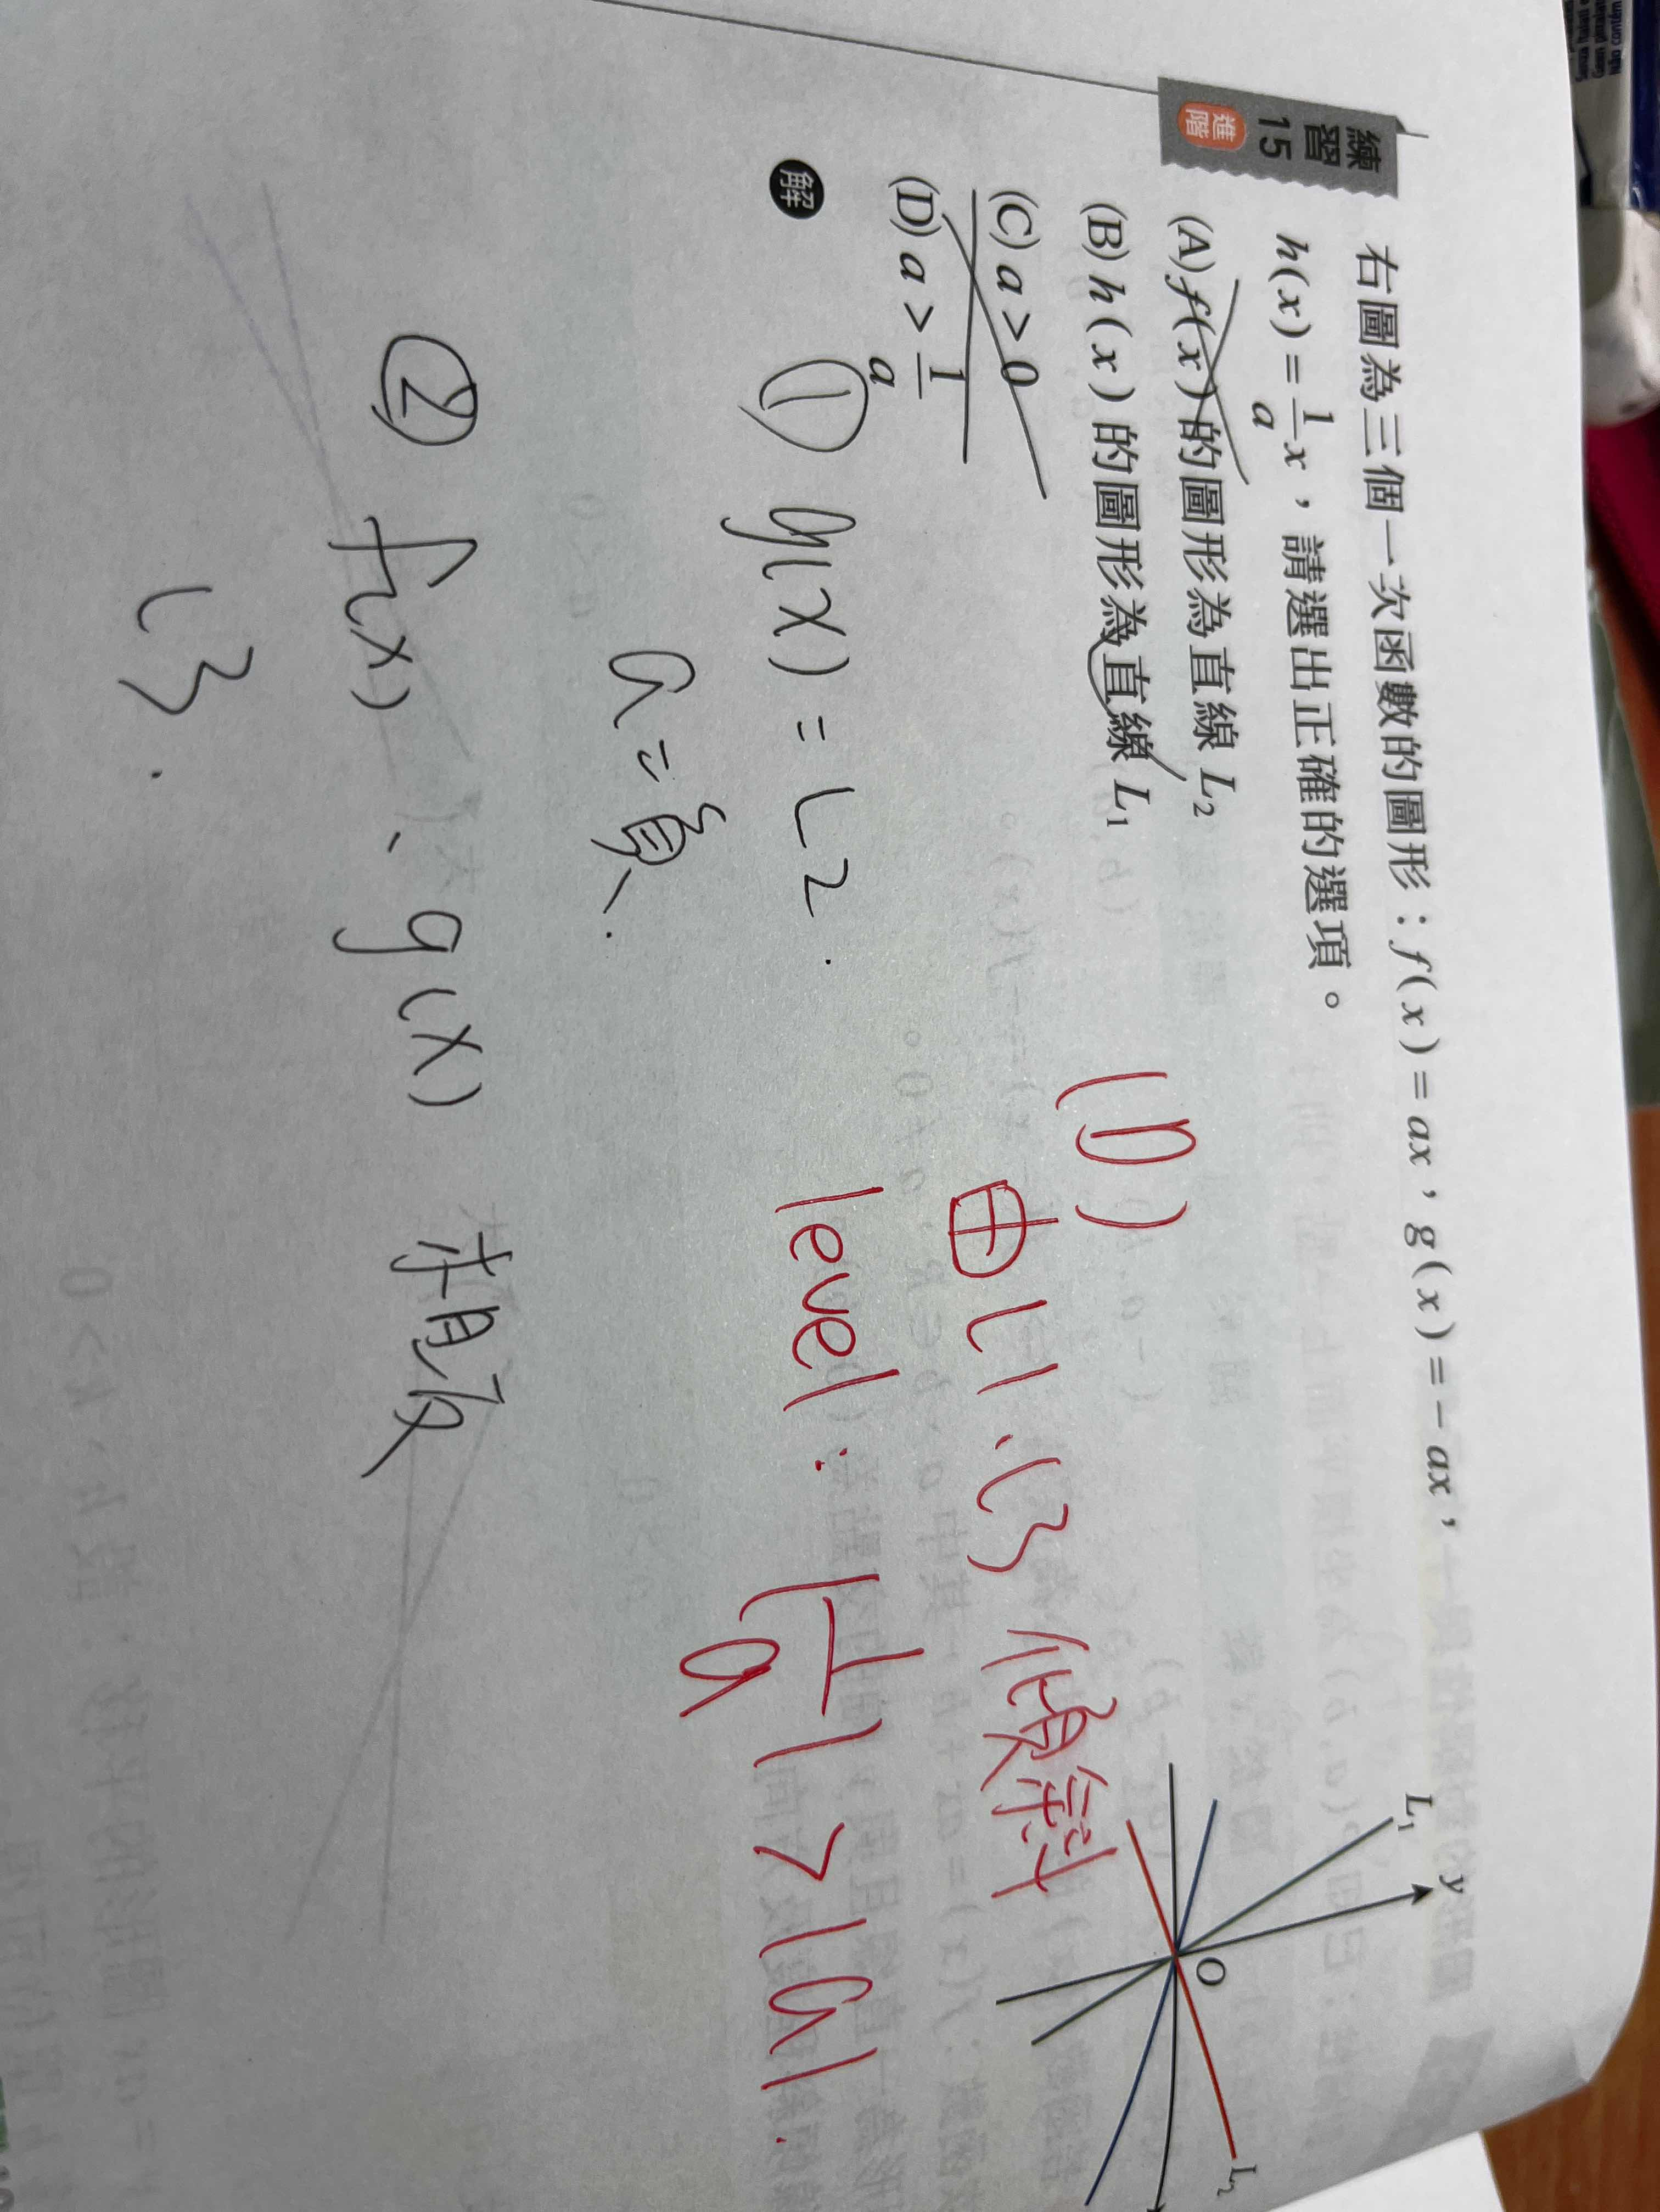 練習
15
進階
右圖為三個一次函數的圖形：f(x)=ax，g(x)=-ax，
h(x)=1/a x，請選出正確的選項。
(A) f(x)的圖形為直線 L₂
(B) h(x)的圖形為直線 L₁
(C) a>0
(D) a>1/a
L₁
y
O
L₂
解
① g(x)=L2.
a=負.
② f(x)、g(x) 相反
L3.
(D)
由L1、L3 傾斜
level: |1/a|>|a|.